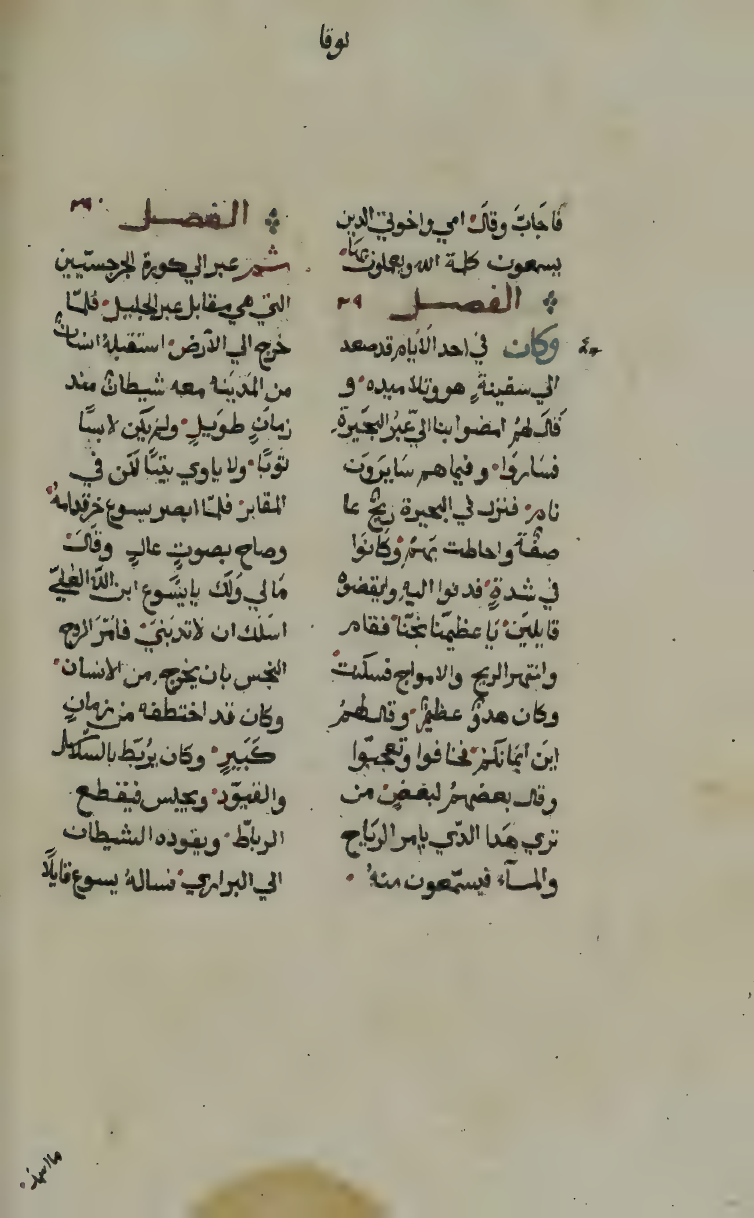 لوقا
فاجاب وقال امي واخوتي الدين
يسمعون كلمة الله ويعملون بها
الفصل ٢٩
وكان في احد الايام قد صعد
الي سفينة هو وتلاميده و
قال لهم امضوا بنا الي عبر البحيرة
فساروا وفيما هم سايرون
نام فنزل في البحيرة ريح عا
صفة واحاطت بهم وكانوا
في شدة فدنوا اليه وايقضوه
قايلين يا عظيمنا نجنا فقام
وانتهر الريح والامواج فسكنت
وكان هدو عظيم وقال لهم
اين ايمانكم فخافوا وتعجبوا
وقال بعضهم لبعض من
تري هدا الدي يامر الرياح
والمآء فيسمعون منه
الفصل
ثم عبر الي كورة الجرجسيين
التي هي مقابل عبر الجليل فلما
خرج الي الارض استقبله انسان
من المدينه معه شيطان مند
زمان طويل ولم يكن لابسا
توبا ولا ياوي بيتا لكن في
المقابر فلما ابصر يسوع خر قدامه
وصاح بصوت عال وقال
ما لي ولك يا يسوع ابن الله العلي
اسلك ان لا تدبني فامر الروح
النجس بان يخرج من الانسان
وكان قد اختطفه من زمان
كبير وكان يربط بالسلاسل
والقيود ويحبس فيقطع
الرباط ويقوده الشيطان
الي البراري فساله يسوع قايلا
ما اسمك